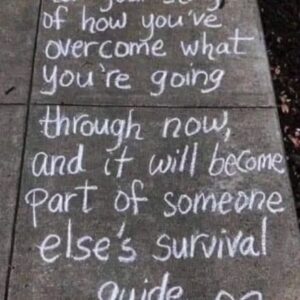 of how you've
overcome what
you're going
through now,
and it will become
part of someone
else's survival
guide